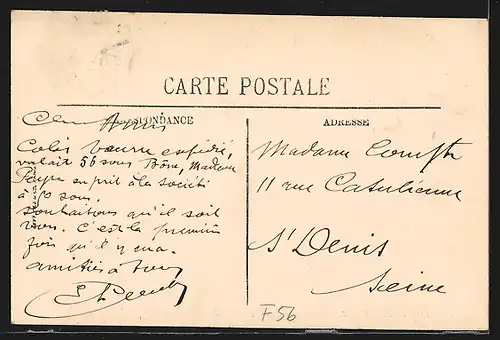 CARTE POSTALE
CORRESPONDANCE
ADRESSE
Chers Amis
Colis beurre expédié,
valait 56 sous Bôme, Madame
en prit à la société
à 50 sous.
Souhaitons qu'il soit
bon. C'est la première
fois qu'il y en a.
amitiés à tous
Madame Compte
11 rue Catulienne
St Denis
Seine
F56